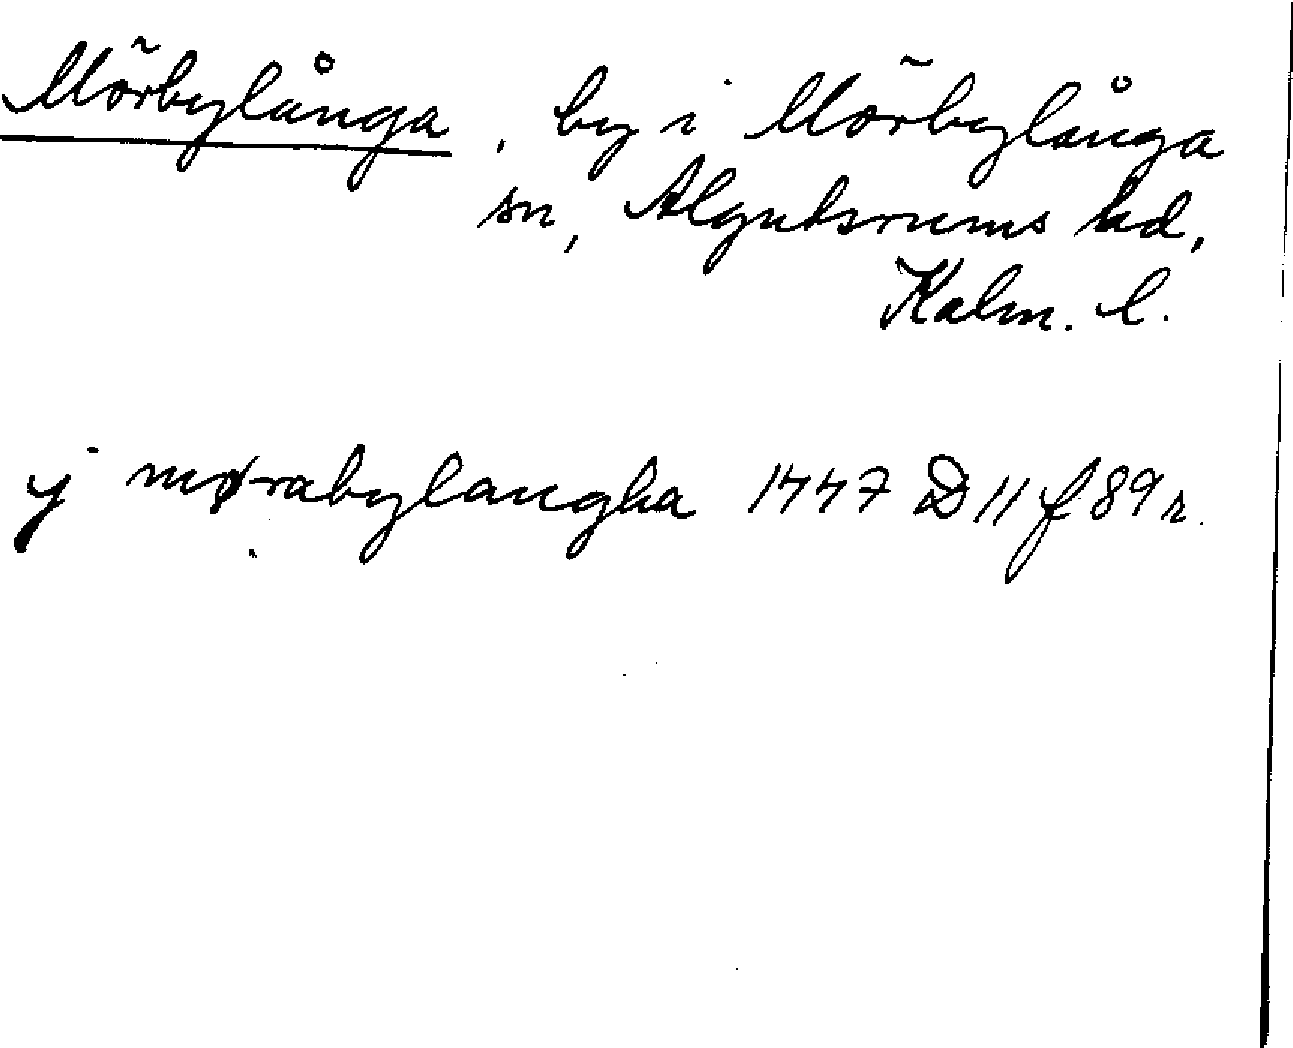 Mörbylånga, by i Mörbylånga
sn, Algutsrums hd,
Kalm. l.
y mørabylangha 1447 D 11 f 89 r.